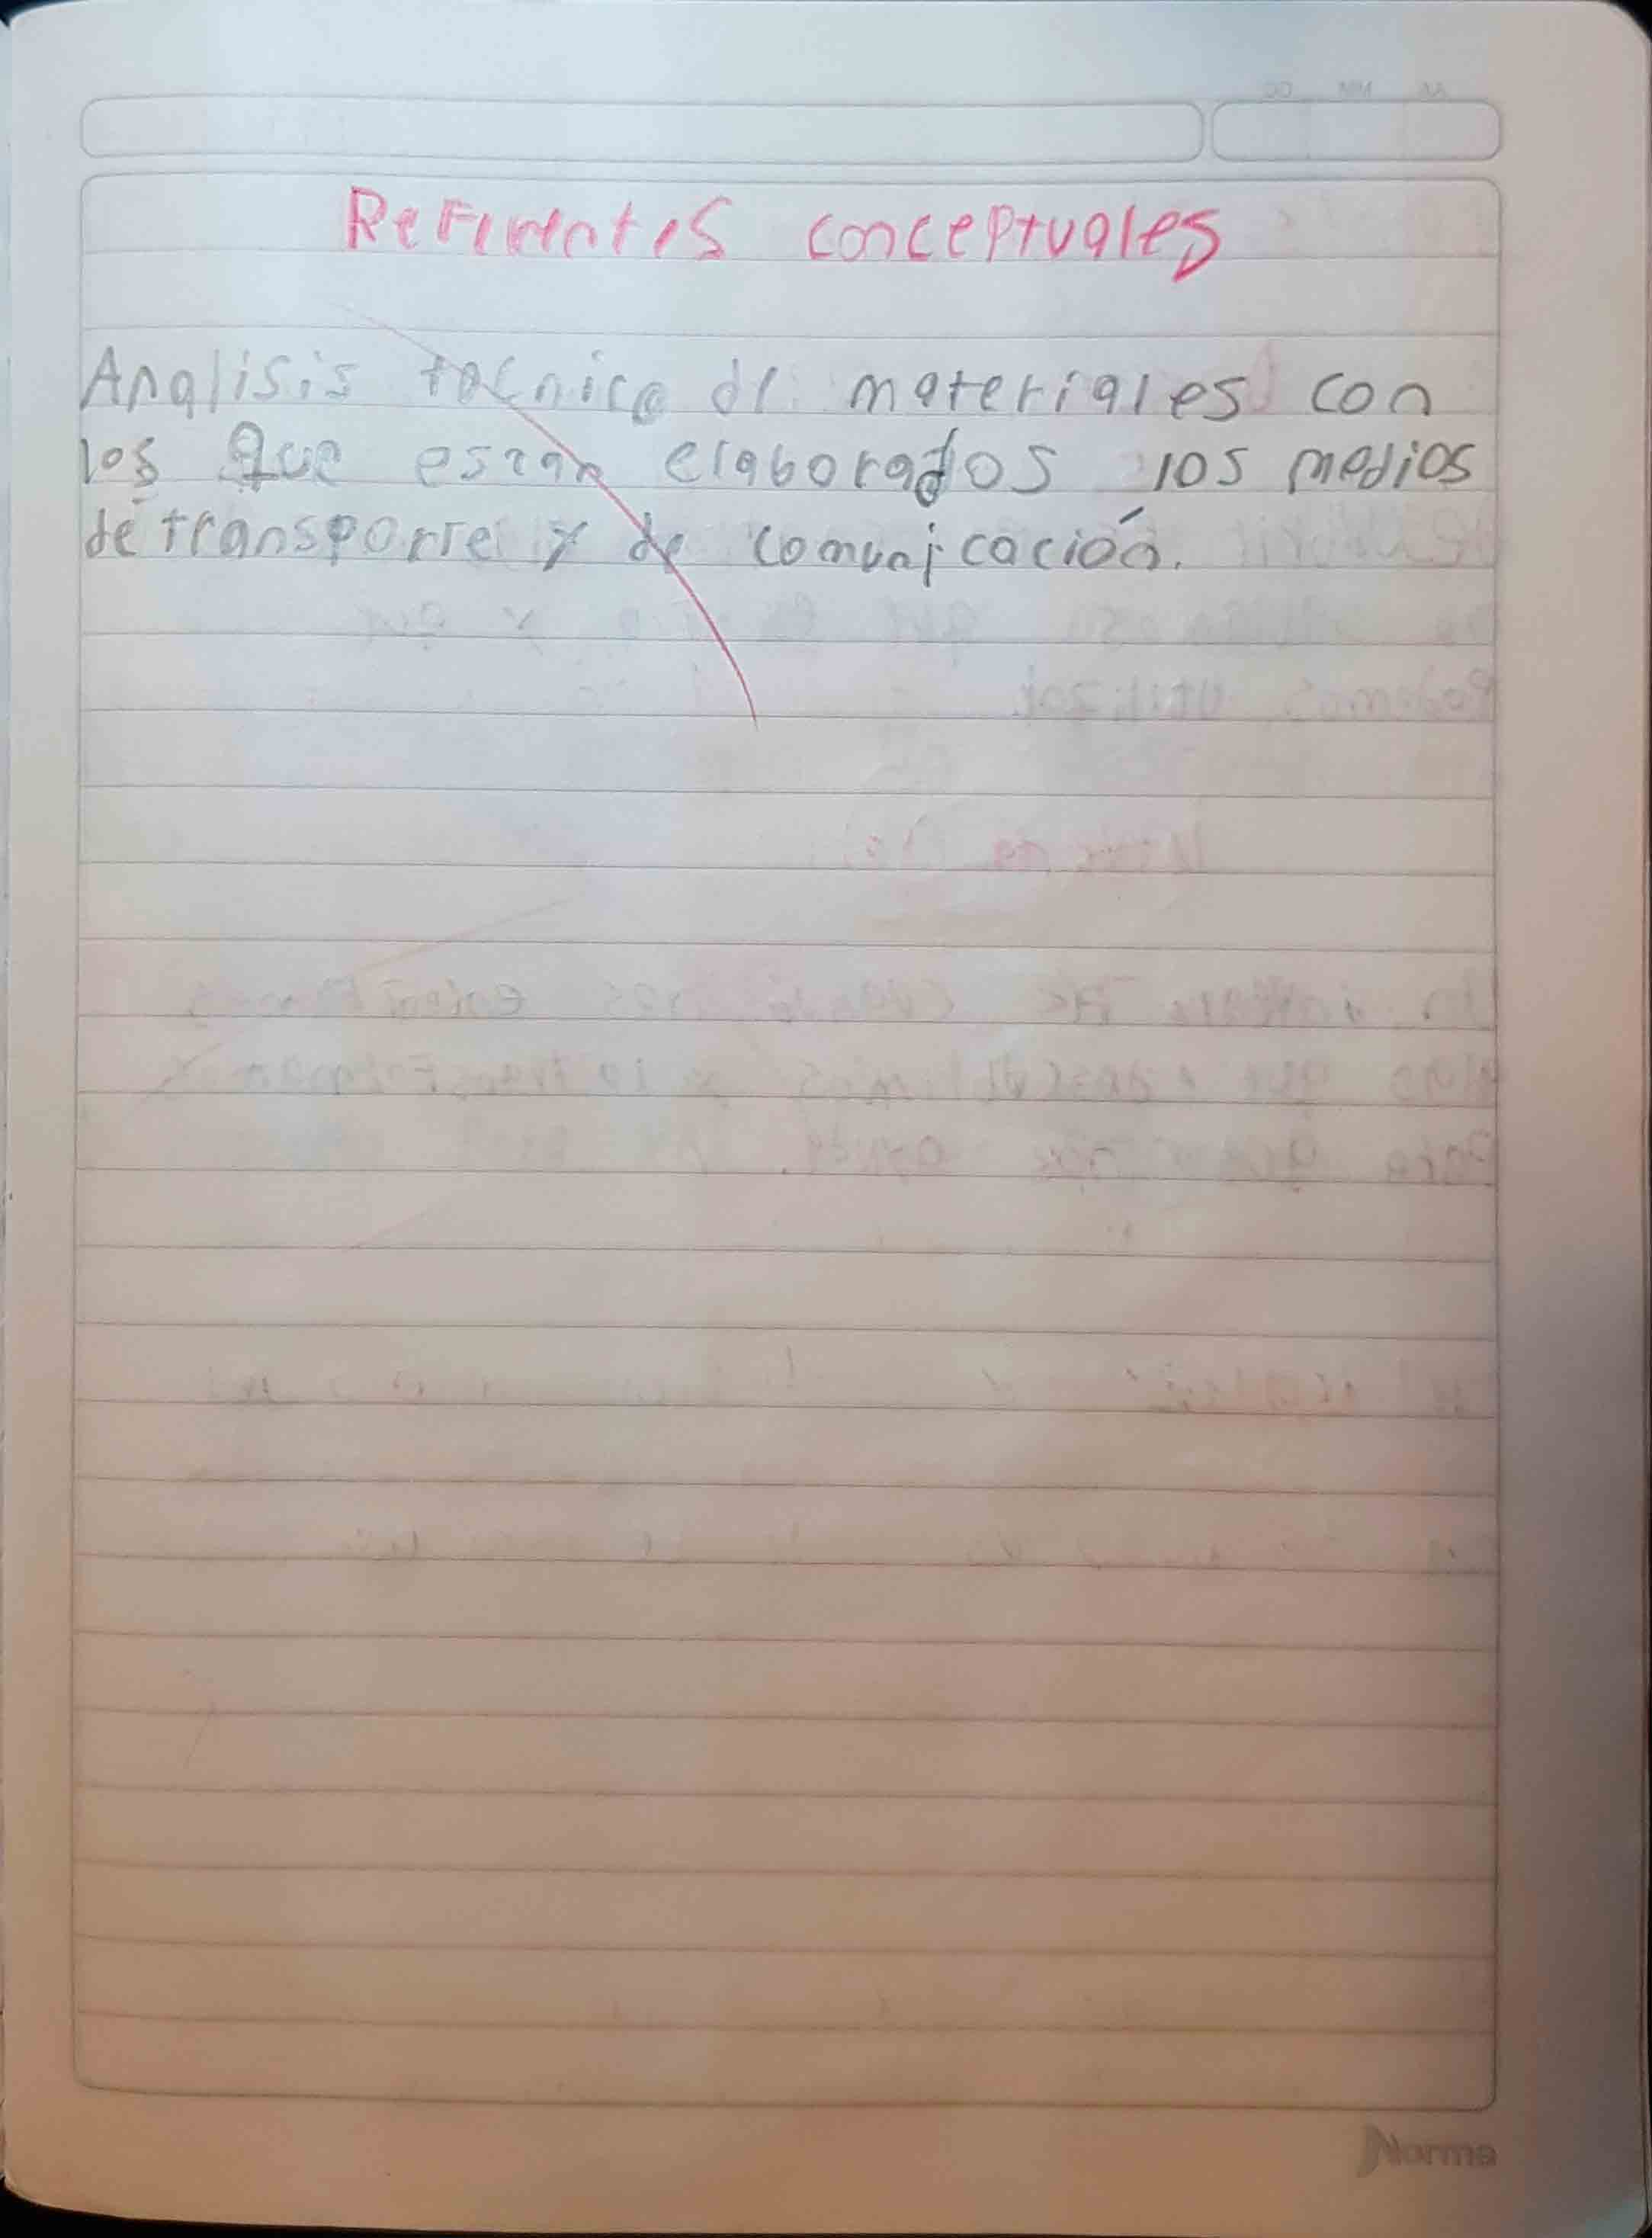 Referentes conceptuales
Analisis tecnico de materiales con
los que estan elaborados los medios
de transporte y de comunicación.
Norma